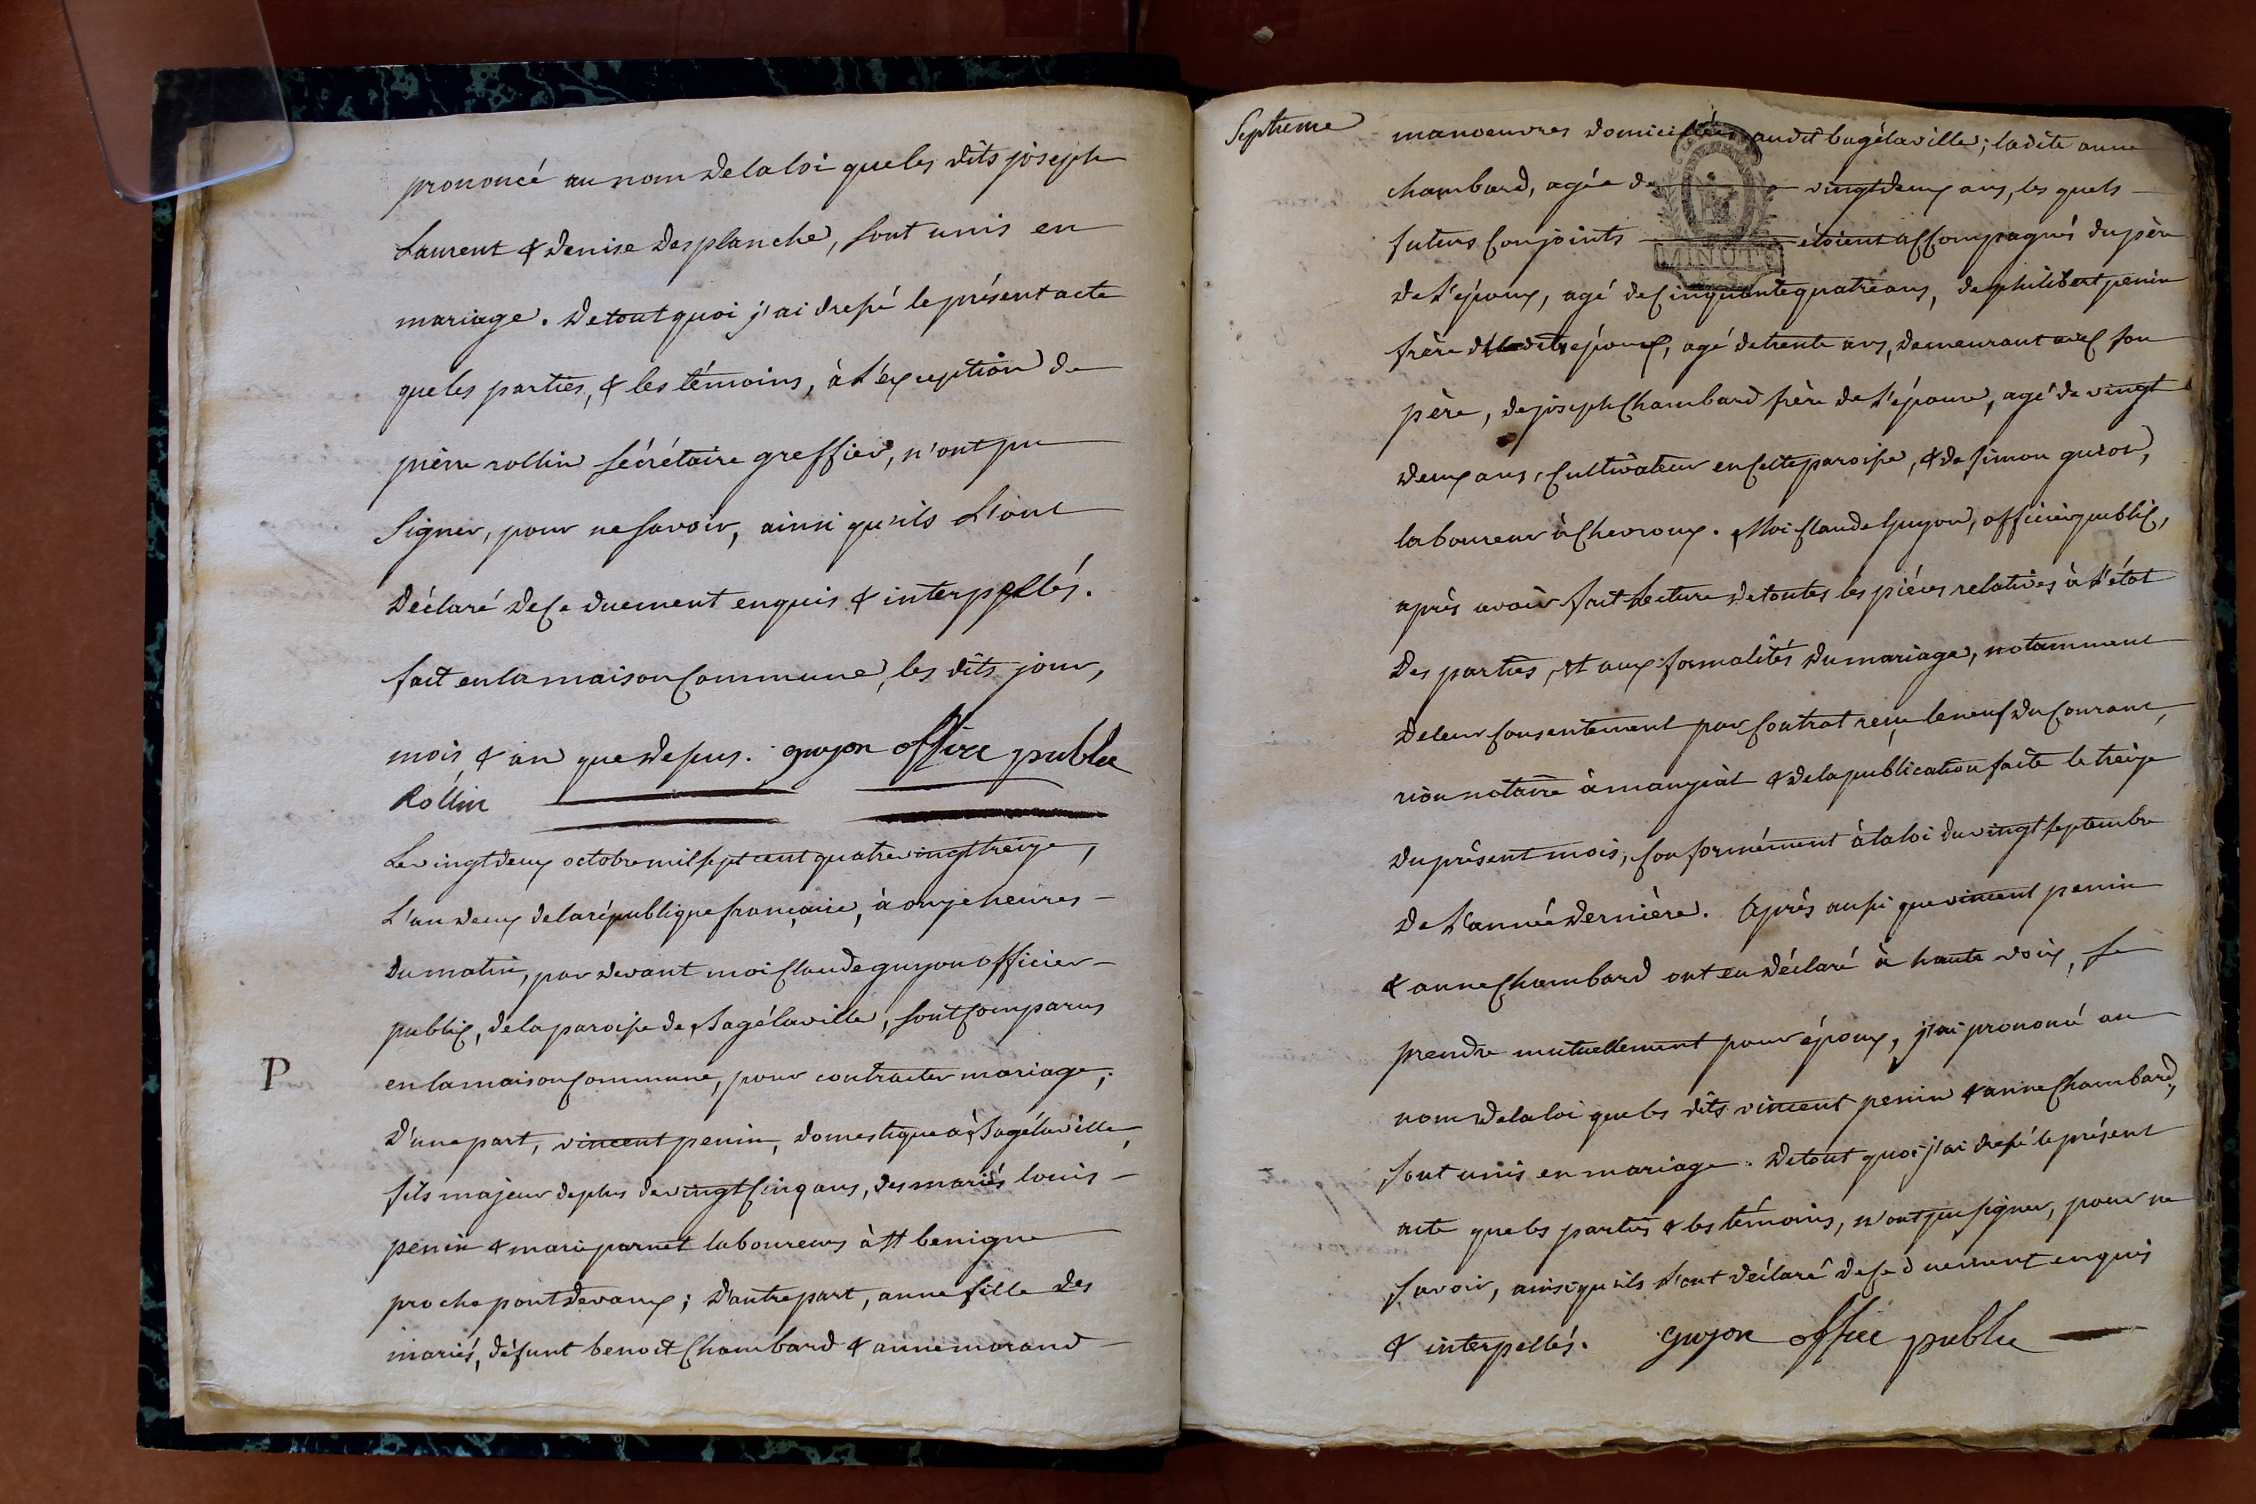 prononcé au nom de la loi que les dits joseph
Laurent & denise desplanche, sont unis en
mariage. De tout quoi j'ai dressé le présent acte
que les parties, & les témoins, à l'exception de
pierre rollin sécrétaire greffier, n'ont pu
signer, pour ne savoir, ainsi qu'ils l'ont
déclaré de ce duement enquis & interpellés.
fait en la maison commune, les dits jour,
mois & an que dessus. guyon office public
Rollin
Le vingt deux octobre mil sept cent quatre vingt treize,
L'an deux de la république françaie, à onze heures
du matin, par devant moi Claude guyon officier
public, de la paroisse de Bagélaville, sont comparus
P
en la maison commune, pour contracter mariage;
d'une part, vincent penin, domestique à Bagélaville,
fils majeur de plus de vingt cinq ans, des mariés louis
penin & marie parnet laboureurs à St benigne
proche pontdevaux; d'autre part, anne fille des
mariés, défunt benoit Chambard & anne morand
Septieme
manoeuvres domiciliés audit bagélaville; la dite anne
chambard, agée de vingt deux ans, les quels
futurs conjoints étoient accompagnés du père
MINUTE
de l'époux, agé de cinquante quatre ans, de philibert penin
frère dudit époux, agé de trente ans, demeurant avec son
père, de joseph Chambard frère de l'épouse, agé de vingt
deux ans, cultivateur en cette paroisse, & de simon guron,
laboureur à Chevroux. Moi Claude Guyon, officier public,
après avoir fait lecture de toutes les piéces relatives à l'état
des parties, et aux formalités du mariage, notamment
de leur consentement par contrat reçu le neuf du courant,
rion notaire à manziat & de la publication faite le treize
du présent mois, conformément à la loi du vingt septembre
de l'année dernière. Après aussi que vincent penin
& anne Chambard ont eu déclaré à haute voix, se
prendre mutuellement pour époux, j'ai prononcé au
nom de la loi que les dits vincent penin & anne Chambard,
sont unis en mariage. De tout quoi j'ai dressé le présent
acte que les parties & les témoins, n'ont pu signer, pour ne
savoir, ainsi qu'ils l'ont déclaré de ce duement enquis
& interpellés. guyon office public